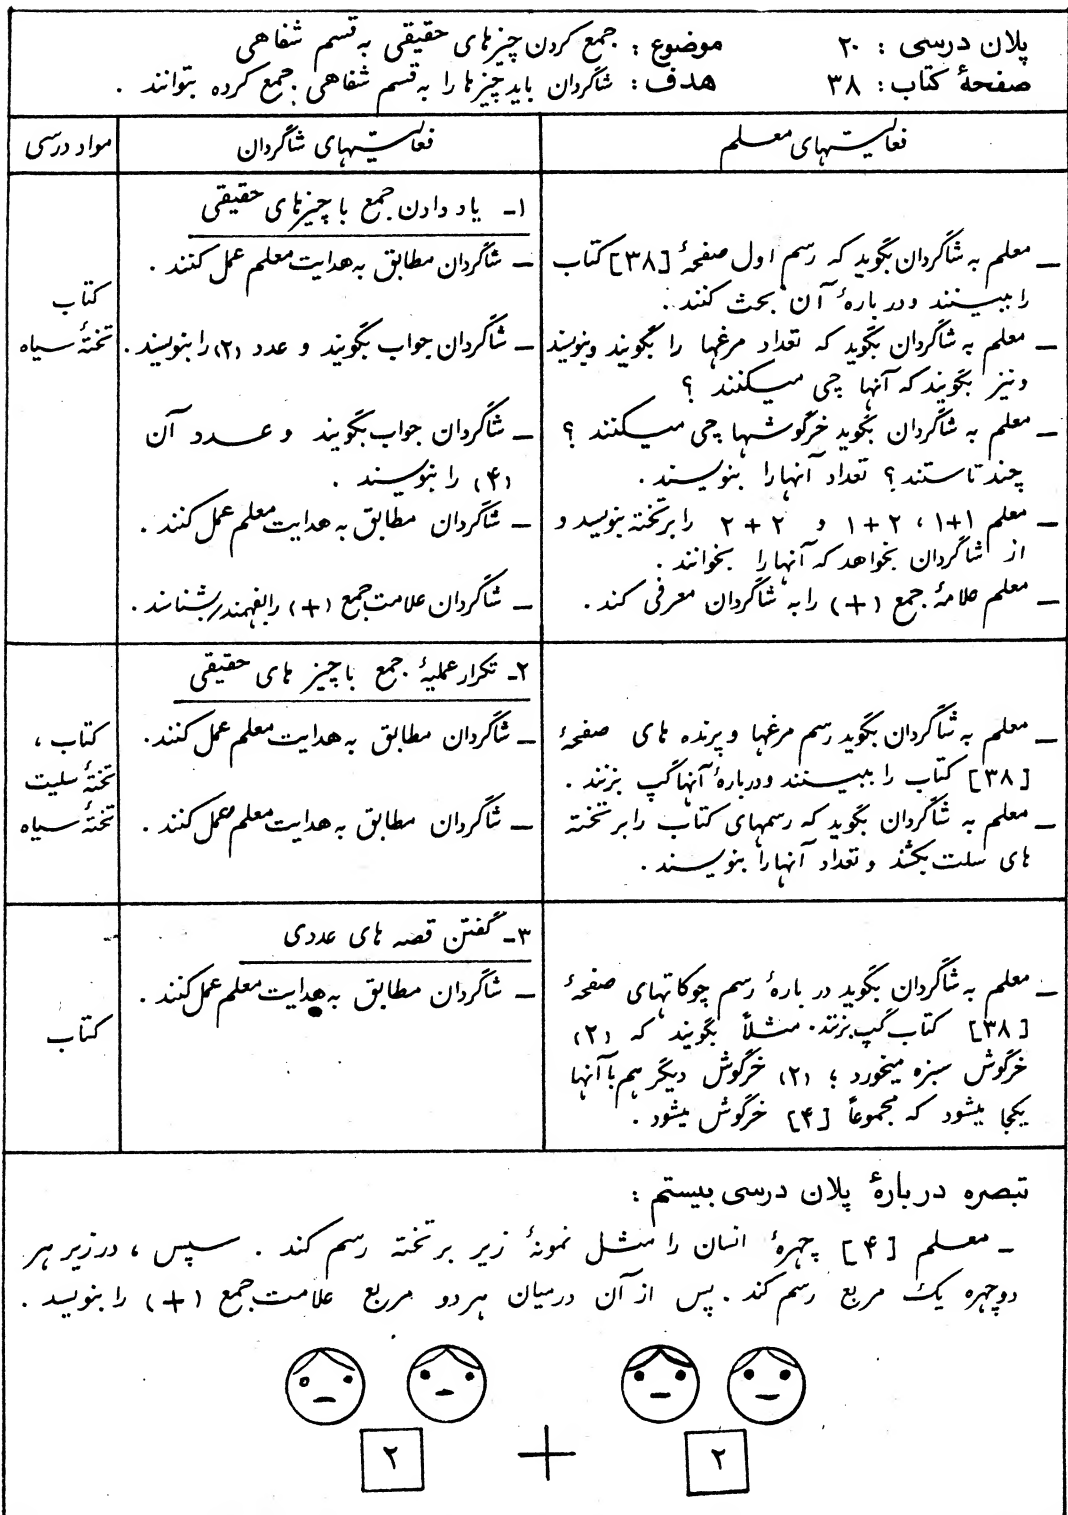 پلان درسی : ۲۰
موضوع : جمع کردن چیزهای حقیقی به قسم شفاهی
صفحهٔ کتاب : ۳۸
هدف : شاگردان باید چیزها را به قسم شفاهی جمع کرده بتوانند .
فعالیتهای معلم
فعالیتهای شاگردان
مواد درسی
۱- یاد دادن جمع با چیزهای حقیقی
– معلم به شاگردان بگوید که رسم اول صفحهٔ [۳۸] کتاب
را ببینند و دربارهٔ آن بحث کنند .
– معلم به شاگردان بگوید که تعداد مرغها را بگویند و بنویسند
و نیز بگویند که آنها چی میکنند ؟
– معلم به شاگردان بگوید خرگوشها چی میکنند ؟
چند تا ستند ؟ تعداد آنها را بنویسند .
– معلم ۱+۱ ، ۲+۱ و ۲+۲ را بر تخته بنویسد و
از شاگردان بخواهد که آنها را بخوانند .
– معلم علامهٔ جمع (+) را به شاگردان معرفی کند .
– شاگردان مطابق به هدایت معلم عمل کنند .
– شاگردان جواب بگویند و عدد (۲) را بنویسند .
– شاگردان جواب بگویند و عدد آن
(۴) را بنویسند .
– شاگردان مطابق به هدایت معلم عمل کنند .
– شاگردان علامت جمع (+) را بفهمند و بشناسند .
کتاب
تختهٔ سیاه
۲- تکرار عملیهٔ جمع با چیز های حقیقی
– معلم به شاگردان بگوید رسم مرغها و پرنده های صفحهٔ
[۳۸] کتاب را ببینند و دربارهٔ آنها گپ بزنند .
– معلم به شاگردان بگوید که رسمهای کتاب را بر تخته
های سلت بکشند و تعداد آنها را بنویسند .
– شاگردان مطابق به هدایت معلم عمل کنند.
– شاگردان مطابق به هدایت معلم عمل کنند .
کتاب ،
تختهٔ سلیت
تختهٔ سیاه
۳- گفتن قصه های عددی
– معلم به شاگردان بگوید در بارهٔ رسم چوکاتهای صفحهٔ
[۳۸] کتاب گپ بزنند. مثلاً بگویند که (۲)
خرگوش سبزه میخورد ؛ (۲) خرگوش دیگر هم با آنها
یکجا میشود که مجموعاً [۴] خرگوش میشود .
– شاگردان مطابق به هدایت معلم عمل کنند .
کتاب
تبصره دربارهٔ پلان درسی بیستم :
– معلم [۴] چهرهٔ انسان را مثل نمونهٔ زیر بر تخته رسم کند . سپس ، در زیر هر
دو چهره یک مربع رسم کند . پس از آن درمیان هر دو مربع علامت جمع (+) را بنویسد .
۲ + ۲